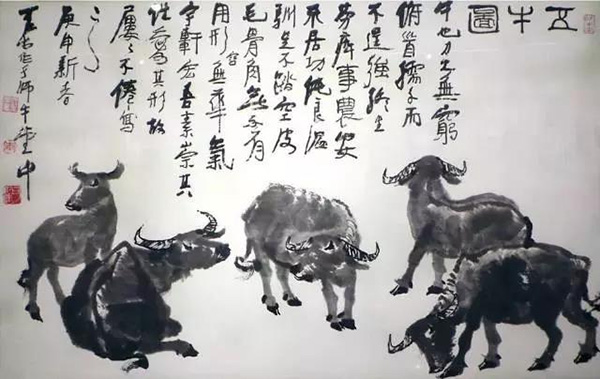 五牛圖
牛也力大無窮
俯首孺子而
不逞強終生
勞瘁事農安
不居功純良溫
馴足不踏空皮
毛骨角無不有
用形容無華氣
宇軒宏吾素崇其
性愛其形故
屢々不倦寫
之
庚申新春
可染作于師牛堂中